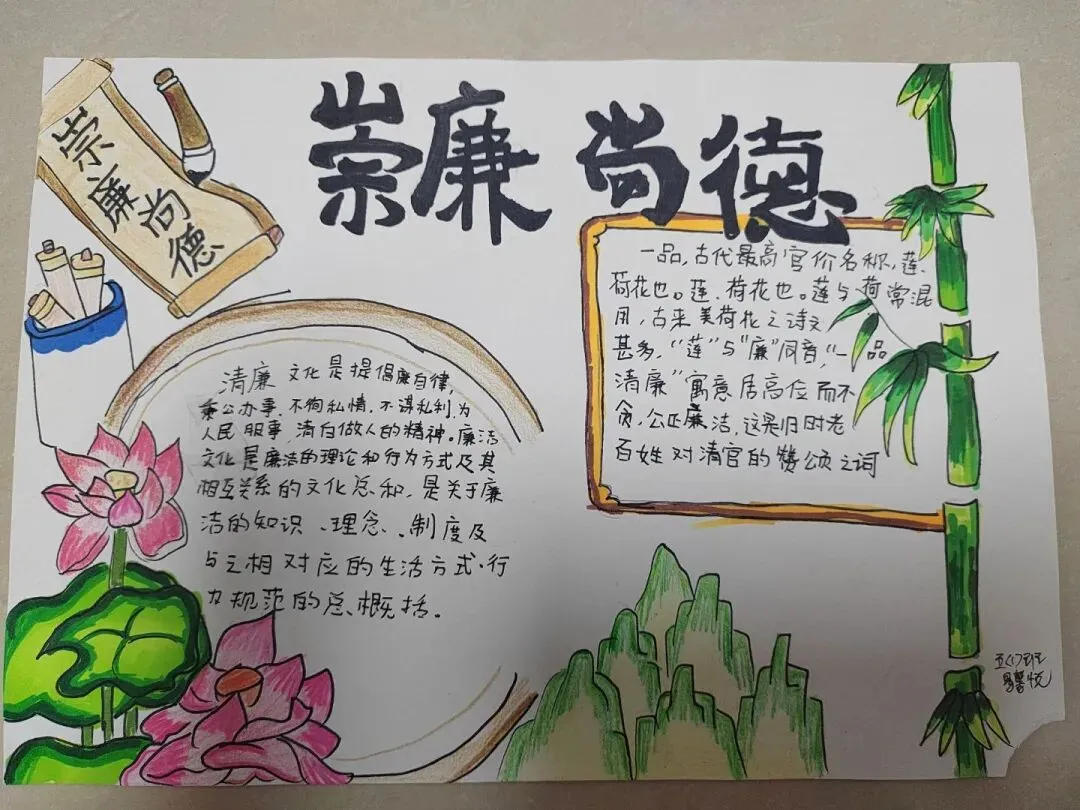 崇廉尚德
崇廉尚德
一品，古代最高官价名称，莲、
荷花也。莲、荷花也。莲与荷常混
用，古来美荷花之诗文
甚多，“莲”与“廉”同音“一品
清廉”寓意居高位而不
贪，公正廉洁，这是旧时老
百姓对清官的赞颂之词
清廉文化是提倡廉自律，
秉公办事，不徇私情，不谋私利，为
人民服事，清白做人的精神。廉洁
文化是廉洁的理论和行为方式及其
相互关系的文化总和，是关于廉
洁的知识、理念、制度及
与之相对应的生活方式、行
为规范的总概括。
五(1)班
馨悦